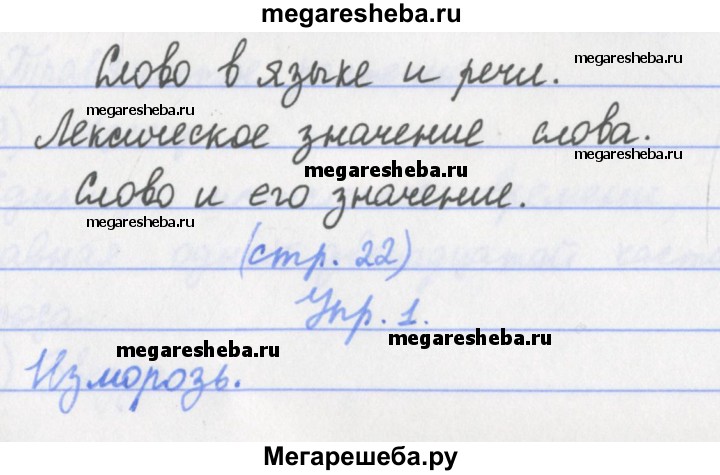 megaresheba.ru
Слово в языке и речи.
megaresheba.ru
megaresheba.ru
Лексическое значение слова.
megaresheba.ru
Слово и его значение.
megaresheba.ru
(стр. 22)
Упр. 1.
megaresheba.ru
megaresheba.ru
Изморозь.
Мегарешеба.ру